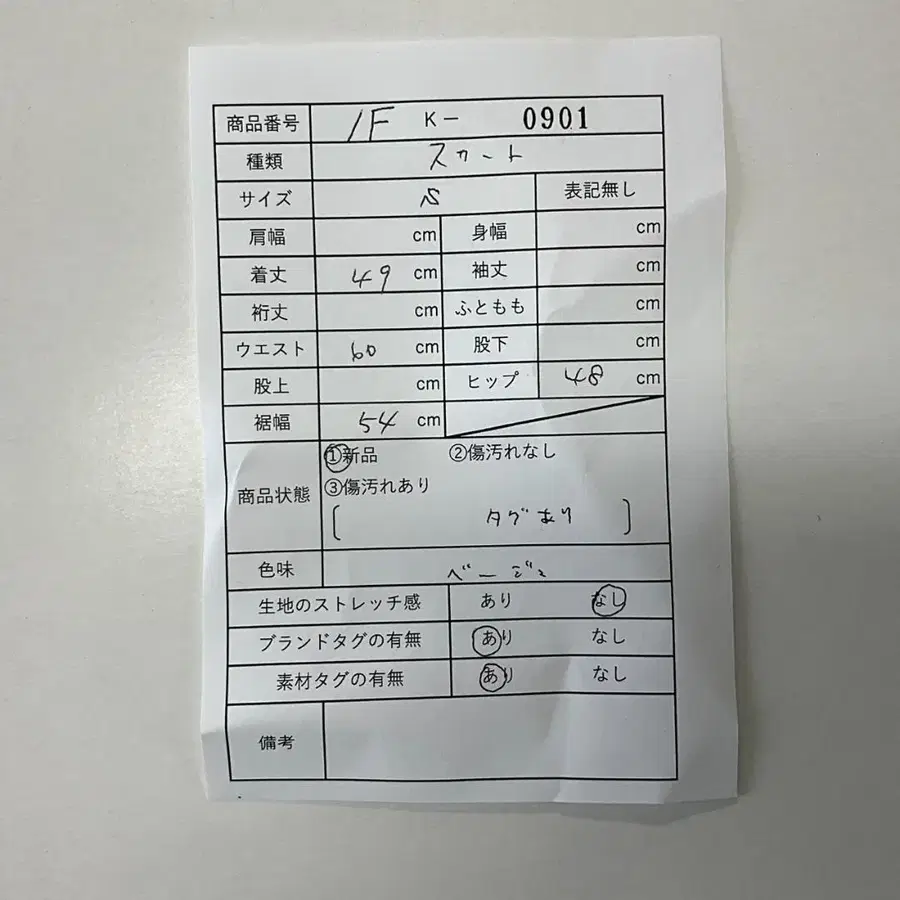 商品番号 1F K- 0901
種類 スカート
サイズ S 表記無し
肩幅 cm 身幅 cm
着丈 49 cm 袖丈 cm
裄丈 cm ふともも cm
ウエスト 60 cm 股下 cm
股上 cm ヒップ 48 cm
裾幅 54 cm
商品状態 ①新品 ②傷汚れなし
③傷汚れあり
[ タグあり ]
色味 ベージュ
生地のストレッチ感 あり なし
ブランドタグの有無 あり なし
素材タグの有無 あり なし
備考